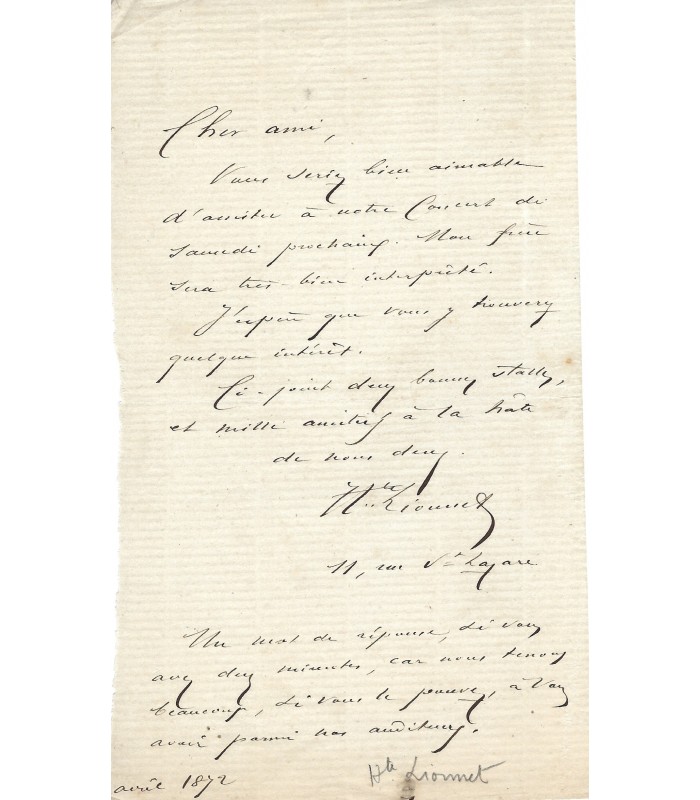 Cher ami,
Vous seriez bien aimable
d'assister à notre Concert de
samedi prochain. Mon frère
sera très-bien interprété.
J'espère que vous y trouverez
quelque intérêt.
Ci-joint deux bonnes stalles,
et mille amitiés à la hâte
de nous deux.
Hte Lionnet
11, rue St Lazare
Un mot de réponse, si vous
avez deux minutes, car nous tenons
beaucoup, si vous le pouvez, à vous
avoir parmi nos auditeurs.
avril 1872
Hte Lionnet